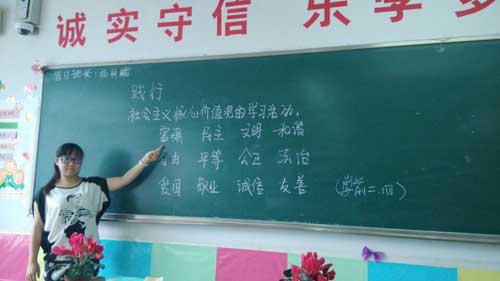 诚实守信 乐学多
日班长：
践行
社会主义核心价值观的学习活动。
富强 民主 文明 和谐
自由 平等 公正 法治
爱国 敬业 诚信 友善 (学前二